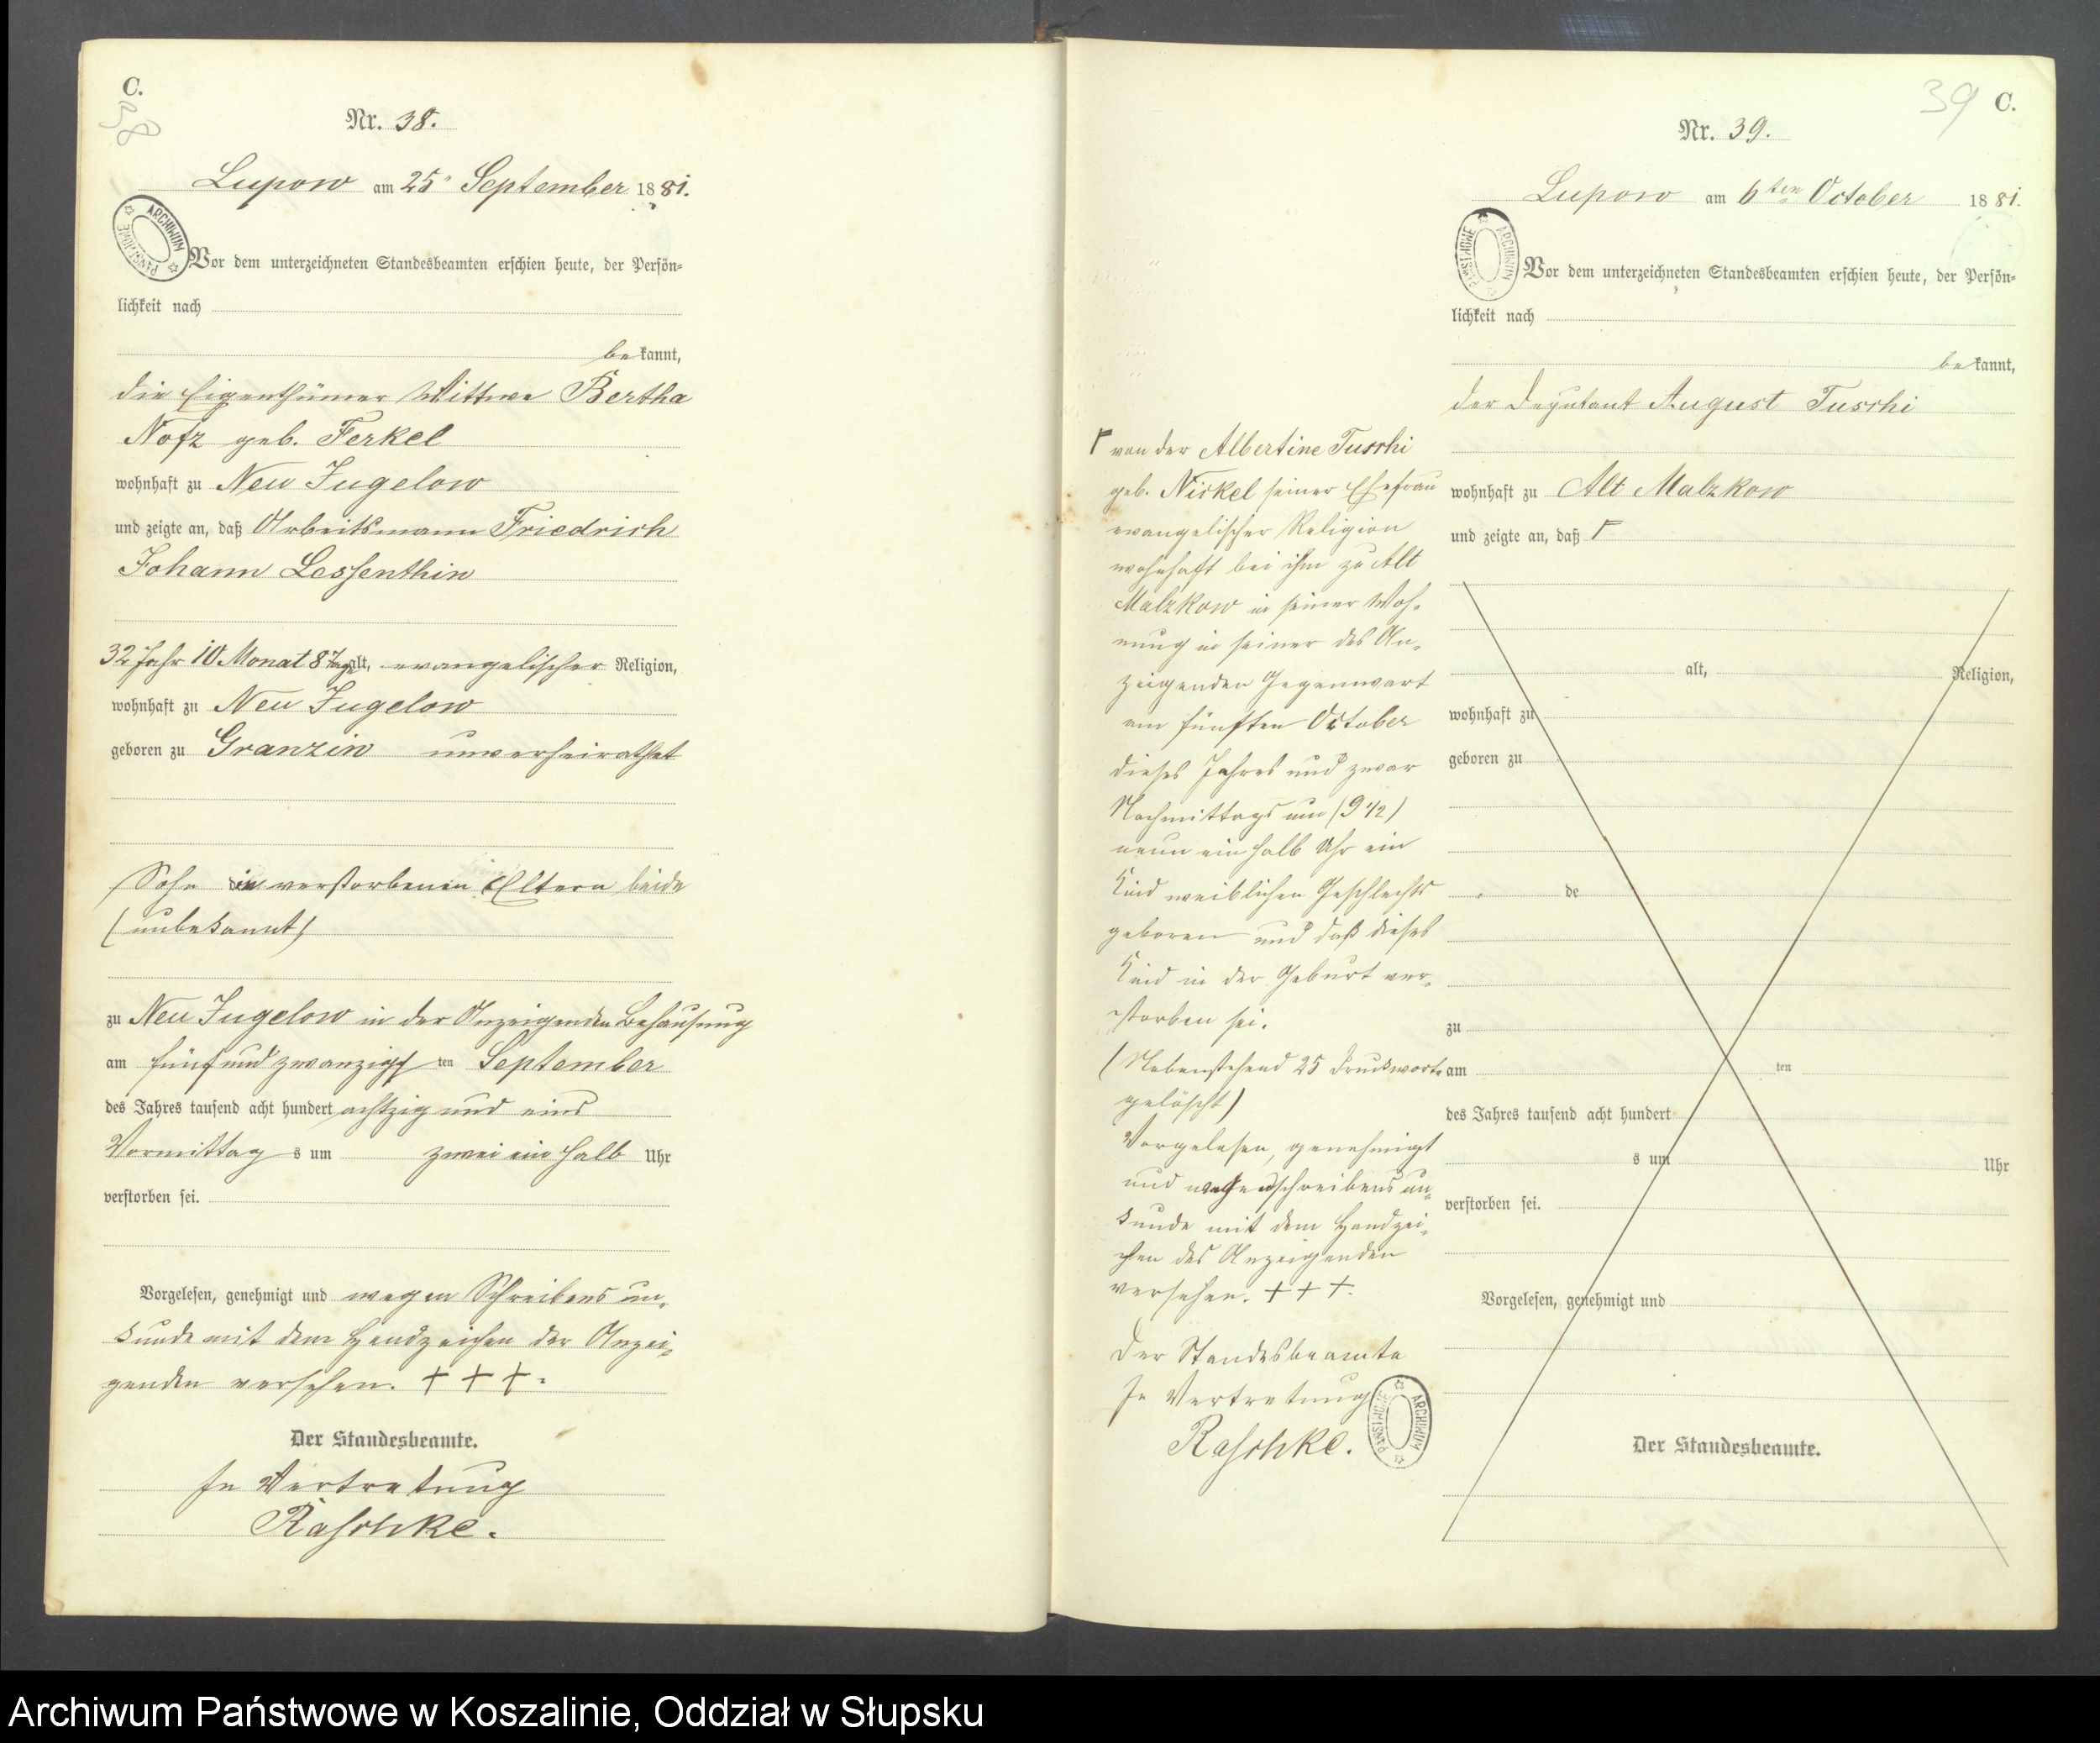 C.
38
Nr. 38.
Lupow am 25. September 1881.
ARCHIWUM PAŃSTWOWE
Vor dem unterzeichneten Standesbeamten erschien heute, der Persön-
lichkeit nach
bekannt,
die Eigenthümer Wittwe Bertha
Nofz geb. Ferkel
wohnhaft zu Neu Jugelow
und zeigte an, daß Arbeitsmann Friedrich
Johann Lessenthin
32 Jahr 10 Monat 8 Tage alt, evangelischer Religion,
wohnhaft zu Neu Jugelow
geboren zu Granzin unverheirathet
Sohn verstorbenen Eltern beide
(unbekannt)
zu Neu Jugelow in der Anzeigenden Behausung
am fünf und zwanzigs ten September
des Jahres tausend acht hundert achtzig und eins
Vormittag s um zwei ein halb Uhr
verstorben sei.
Vorgelesen, genehmigt und wegen Schreibens un-
kunde mit dem Handzeichen der Anzei-
genden versehen. + + +.
Der Standesbeamte.
In Vertretung
Raschke.
39 C.
Nr. 39.
Lupow am 6ten October 1881.
ARCHIWUM PAŃSTWOWE
Vor dem unterzeichneten Standesbeamten erschien heute, der Persön-
lichkeit nach
bekannt,
der Deputant August Tuschi
wohnhaft zu Alt Malzkow
und zeigte an, daß Γ
alt, Religion,
wohnhaft zu
geboren zu
de
zu
am ten
des Jahres tausend acht hundert
s um Uhr
verstorben sei.
Vorgelesen, genehmigt und
Der Standesbeamte.
Γ von der Albertine Tuschi
geb. Nickel seiner Ehefrau
evangelischer Religion
wohnhaft bei ihm zu Alt
Malzkow in seiner Woh-
nung in seiner des An-
zeigenden Gegenwart
am fünften October
dieses Jahres und zwar
Nachmittags um (9 1/2)
neun ein halb Uhr ein
Kind weiblichen Geschlechts
geboren und daß dieses
Kind in der Geburt ver-
storben sei.
(Nebenstehend 25 Druckworte
gelöscht)
Vorgelesen, genehmigt
und wegen schreibens un-
kunde mit dem Handzei-
chen des Anzeigenden
versehen. + + +.
Der Standesbeamte
In Vertretung
Raschke.
ARCHIWUM PAŃSTWOWE
Archiwum Państwowe w Koszalinie, Oddział w Słupsku